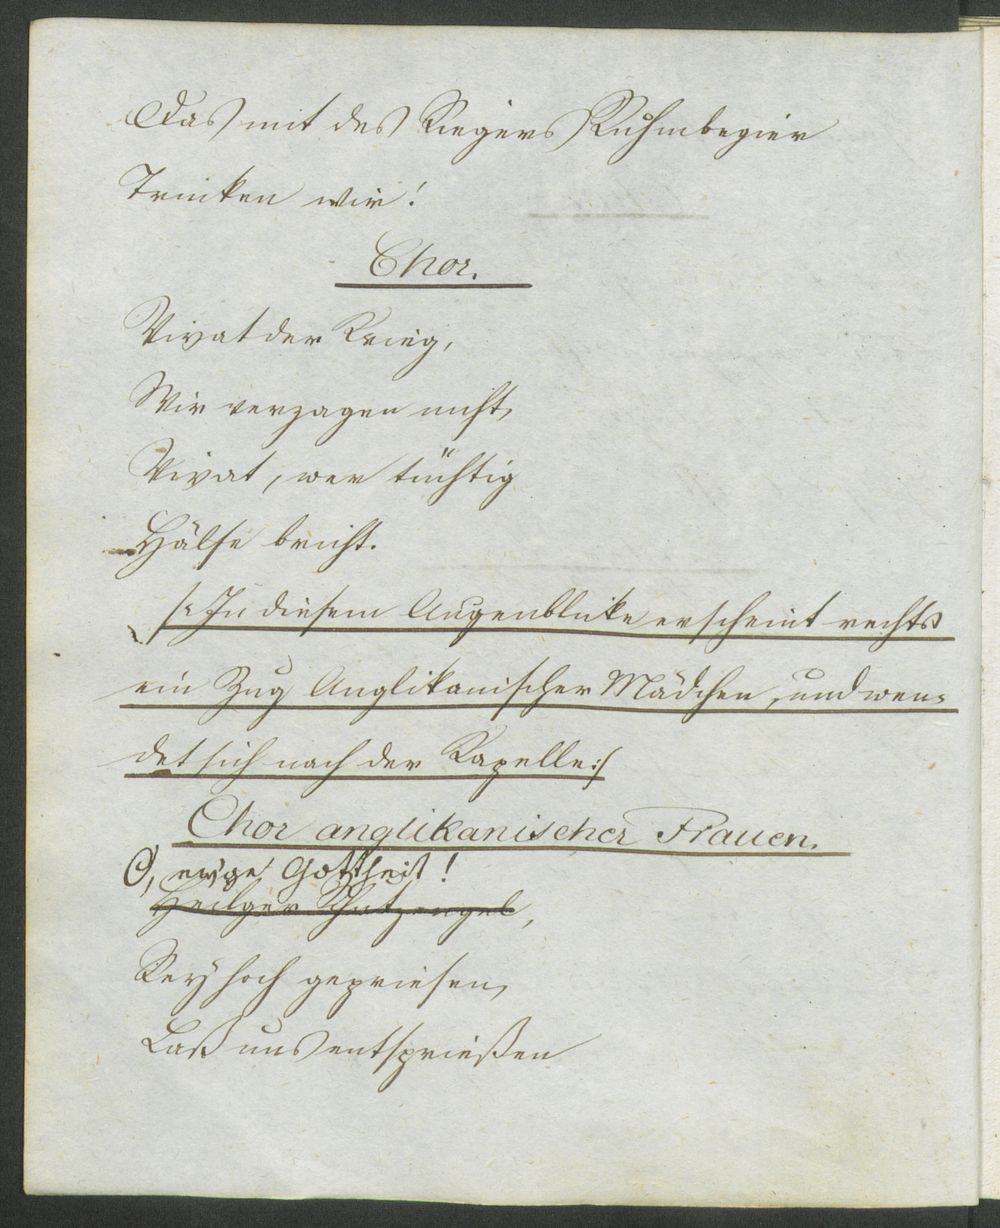 Das mit des Siegers Ruhmbegier
Trinken wir!
Chor.
Vivat der Krieg,
Wir verzagen nicht,
Vivat, wer tüchtig
Hälse bricht.
/: In diesem Augenblicke erscheint rechts
ein Zug Anglikanischer Mädchen, und wen-
det sich nach der Kapelle :/
Chor anglikanischer Frauen.
O, ew'ge Gottheit!
Heilger Schutzengel,
Sey hoch gepriesen,
Laß uns entsprießen